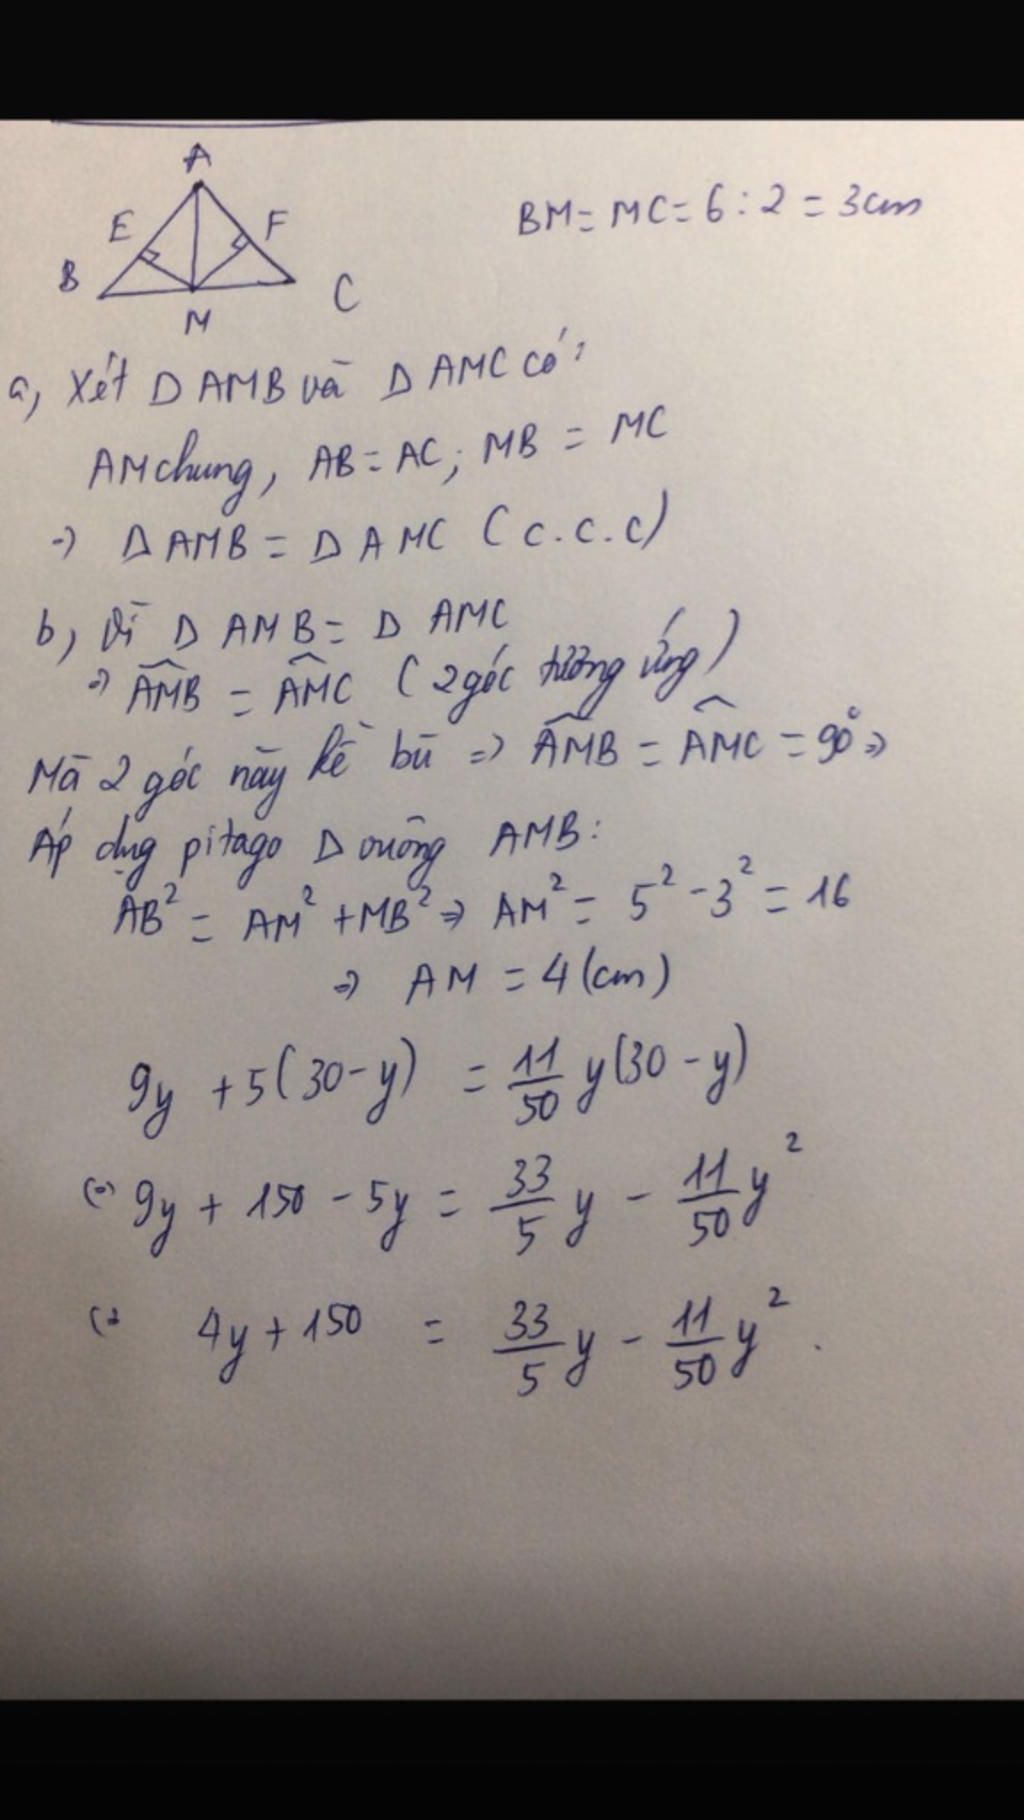 A
E F
B C
M
BM = MC = 6 : 2 = 3cm
a, Xét Δ AMB và Δ AMC có:
AM chung, AB = AC; MB = MC
=> Δ AMB = Δ AMC (c.c.c)
b, Vì Δ AMB = Δ AMC
=> \widehat{AMB} = \widehat{AMC} (2 góc tương ứng)
Mà 2 góc này kề bù => \widehat{AMB} = \widehat{AMC} = 90° =>
Áp dụng pitago Δ vuông AMB:
AB² = AM² + MB² => AM² = 5² - 3² = 16
=> AM = 4 (cm)
9y + 5(30 - y) = \frac{11}{50} y(30 - y)
(=) 9y + 150 - 5y = \frac{33}{5} y - \frac{11}{50} y²
4y + 150 = \frac{33}{5} y - \frac{11}{50} y² .